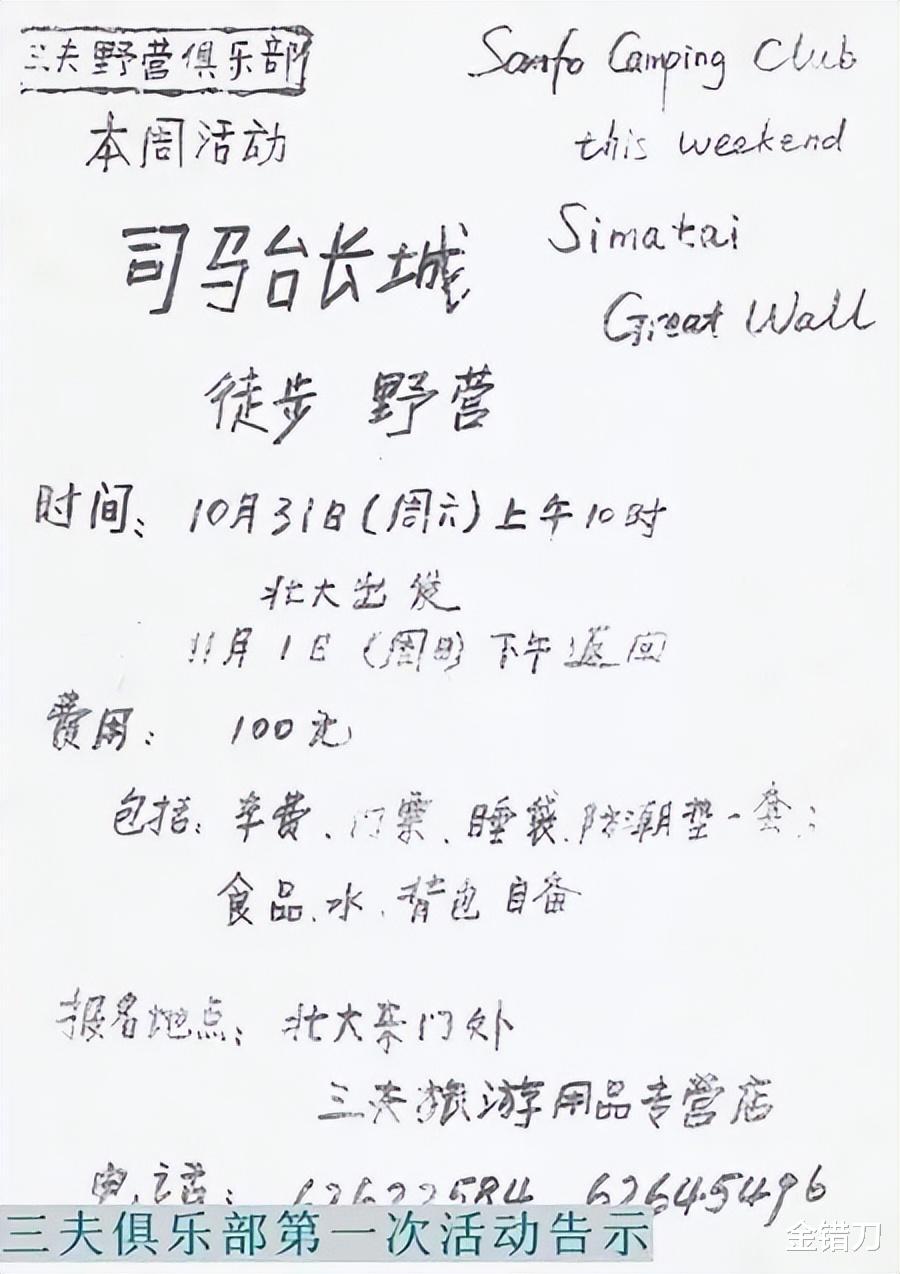 三夫野营俱乐部
Sanfo Camping Club
本周活动
this weekend
司马台长城
Simatai
Great Wall
徒步 野营
时间: 10月31日(周六)上午10时
北大出发
11月1日(周日)下午返回
费用: 100元
包括: 车费、门票、睡袋、防潮垫一套;
食品、水、背包自备
报名地点: 北大东门外
三夫旅游用品专营店
电话: 62645496
三夫俱乐部第一次活动告示
金错刀